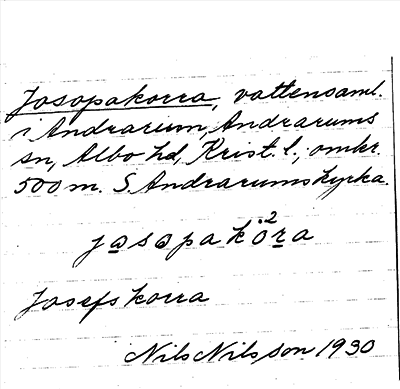 Josopakorra, vattensaml.
i Andrarum, Andrarums
sn, Albo hd, Krist. l., omkr.
500 m. S. Andrarums kyrka.
jasapakò²ra
Josefskorra
Nils Nilsson 1930